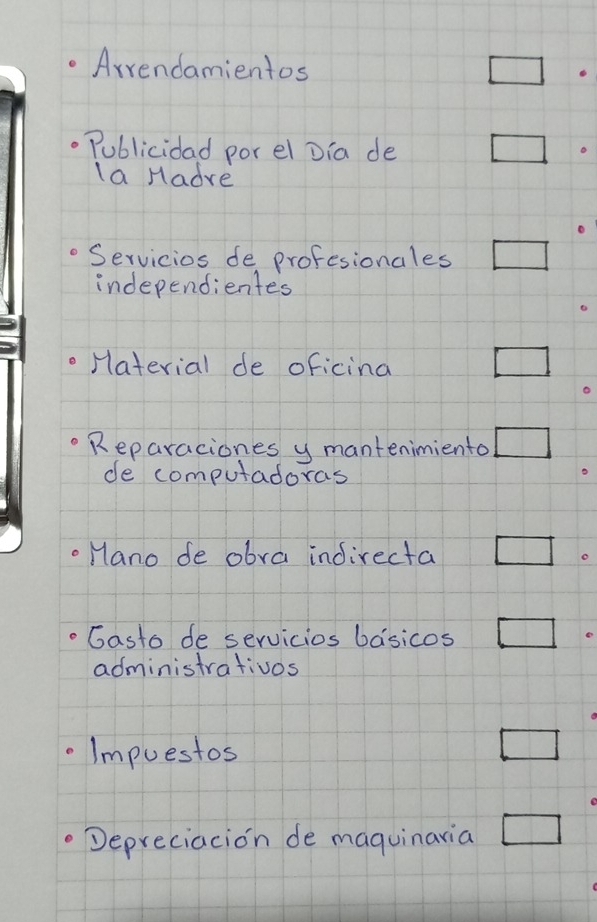 • Arrendamientos
• Publicidad por el Día de
la Madre
• Servicios de profesionales
independientes
• Material de oficina
• Reparaciones y mantenimiento
de computadoras
• Mano de obra indirecta
• Gasto de servicios básicos
administrativos
• Impuestos
• Depreciación de maquinaria